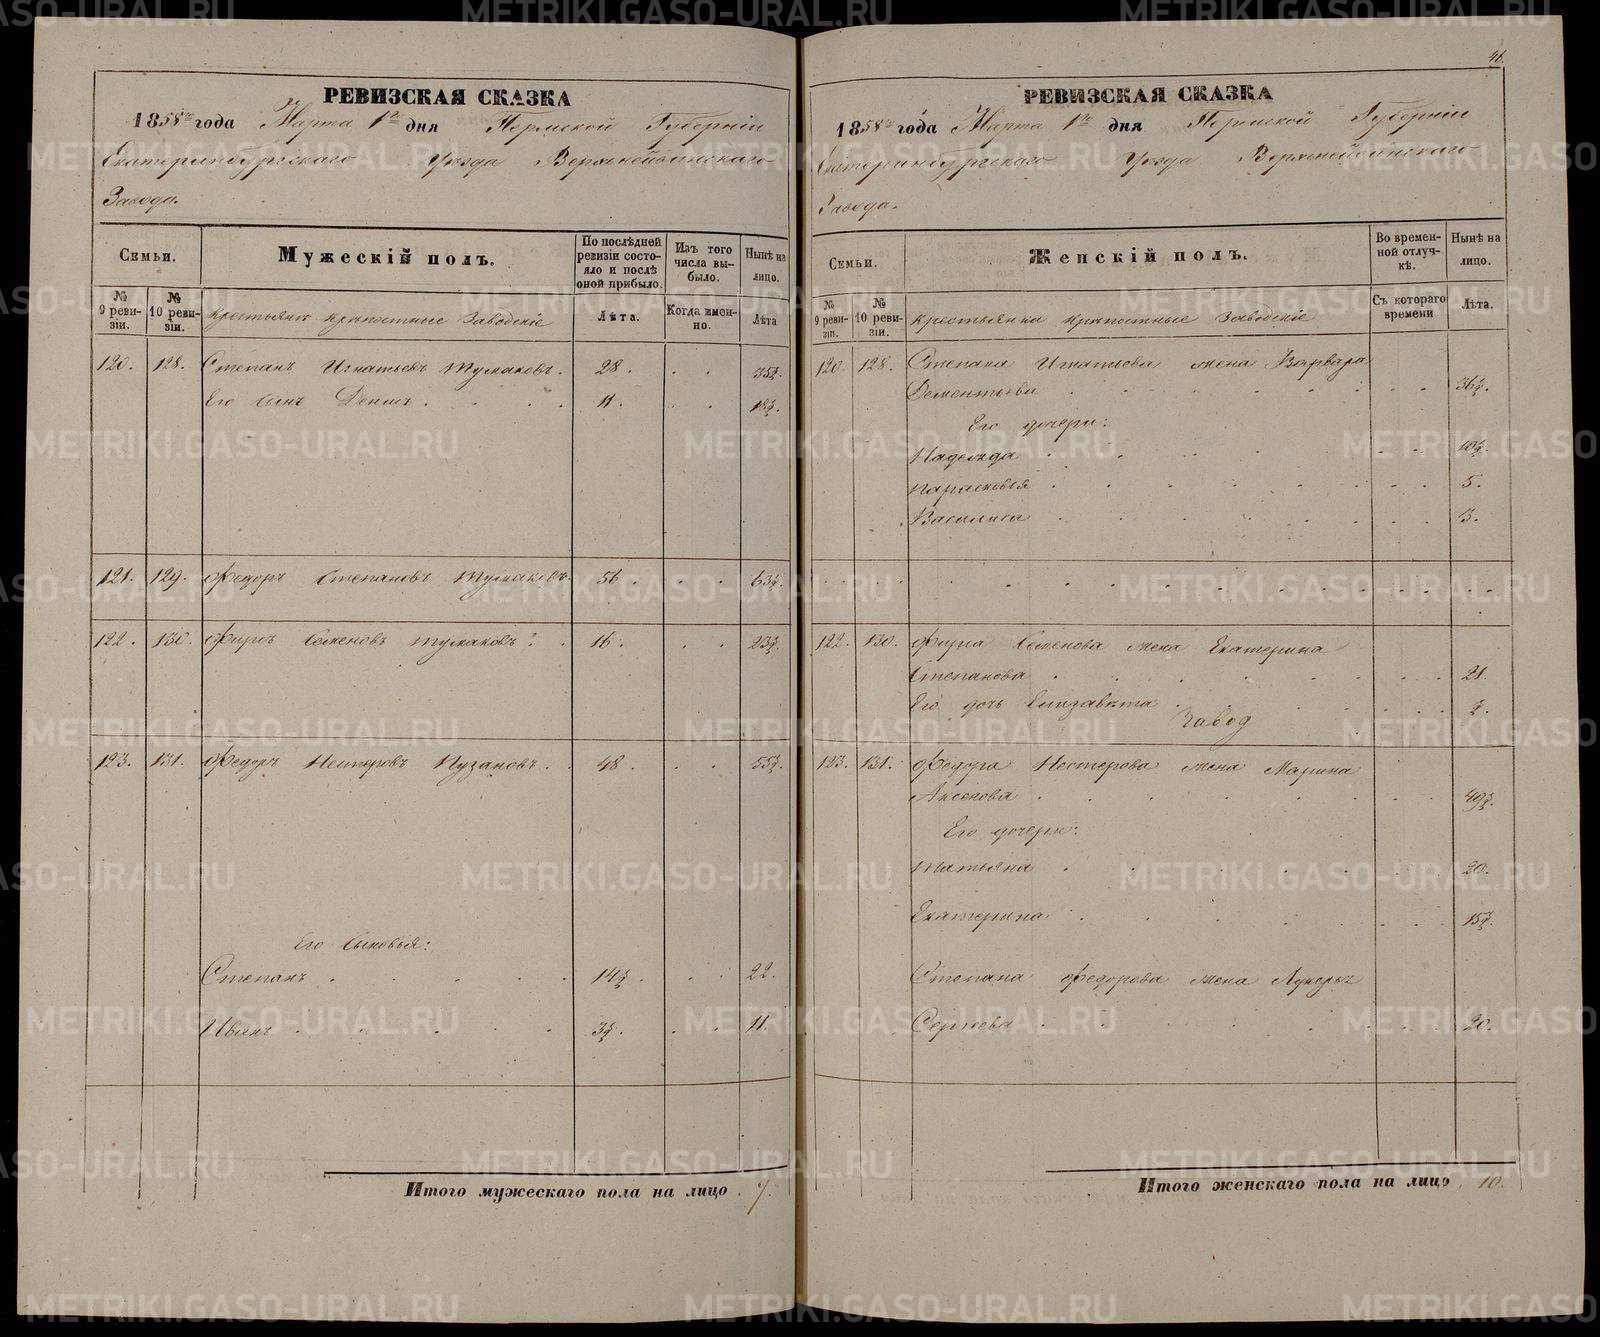 РЕВИЗСКАЯ СКАЗКА
1858го года Марта 1го дня Пермской Губернiи
Екатеринбургскаго Уѣзда Верхнейвинскаго
Завода.
Семьи.
Мужескiй полъ.
По послѣдней ревизiи состояло и послѣ оной прибыло.
Изъ того числа выбыло.
Нынѣ на лицо.
№ 9 ревизiи.
№ 10 ревизiи.
Крестьянъ крѣпостные Заводскiе
Лѣта.
Когда именно.
Лѣта
120. 128. Степанъ Игнатьевъ Тумаковъ. 28. 35½.
Его Сынъ Денисъ. 11. 18½.
121. 129. Федоръ Степановъ Тумаковъ. 56. 63½.
122. 130. Фирсъ Семеновъ Тумаковъ. 16. 23½.
123. 131. Федоръ Нестеровъ Пузановъ. 48. 55½.
Его Сыновья:
Степанъ 14½. 22.
Иванъ 3½. 11.
Итого мужескаго пола на лицо 7.
46.
РЕВИЗСКАЯ СКАЗКА
1858го года Марта 1го дня Пермской Губернiи
Екатеринбургскаго Уѣзда Верхнейвинскаго
Завода.
Семьи.
Женскiй полъ.
Во временной отлучкѣ.
Нынѣ на лицо.
№ 9 ревизiи.
№ 10 ревизiи.
Крестьянки крѣпостные Заводскiе
Съ котораго времени
Лѣта.
120. 128. Степана Игнатьева жена Варвара
Дементьева 36½.
Его дочери:
Надежда 10½.
Парасковья 5.
Василиса 3.
122. 130. Фирса Семенова жена Екатерина
Степанова 21.
Его дочь Елизавета ½.
123. 131. Федора Нестерова жена Марина
Аксенова 49½.
Его дочери:
Татьяна 20.
Екатерина 15½.
Степана Федорова жена Лукерья
Сергеева 20.
Итого женскаго пола на лицо 10.
METRIKI.GASO-URAL.RU